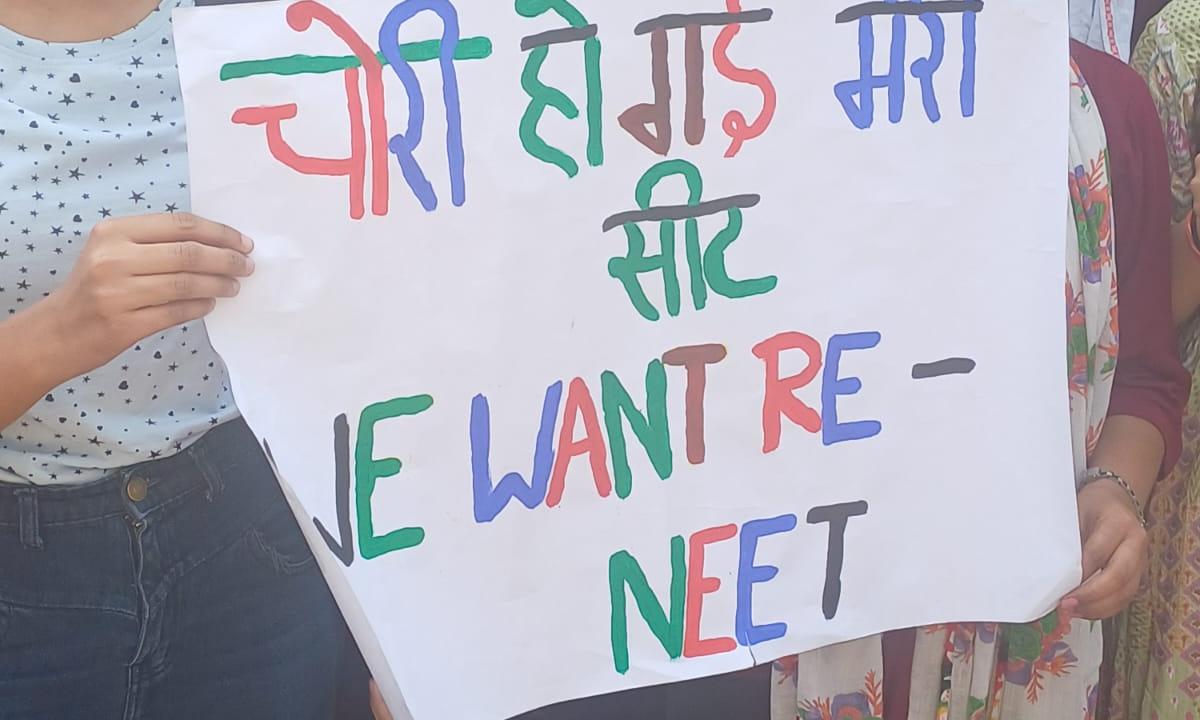 चोरी हो गई मेरी
सीट
WE WANT RE -
NEET